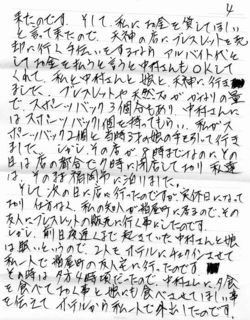 4
来たのです。そして、私にお金を貸してほしい
と言って来たので、天神の店にブレスレットを売
却に行く手伝いをするというアルバイト代と
してお金を払うと言うと中村さんもOKして
くれて、私と中村さんと娘と天神に行き
ました。ブレスレットや天然石がかなりの量
で、スポーツバック3個分もあり、中村さんに
はスポーツバック1個を持ってもらい、私がス
ポーツバック2個と当時3才の娘の手を引いて行き
ました。しかし、その店が8時までなのにその
日は店の都合で7時に閉店しており、私達
は、そのまま福岡市に泊りました。
そして次の日に店に行ったのですが、定休日になって
おり、仕方なく、私の知人が粕屋町に居るので、その
友人にブレスレットの販売に行く事にしたのです。
しかし、前日夜遅くまで起きていた中村さんと娘
は眠いというので、2人をホテルにチェックインさせて
私一人で粕屋町の友人宅に行ったのです
その時は夕方4時頃だったので、中村さんに夕食
を食べておく事と娘にも夕食べさせてほしい事
を伝えてホテルから私一人で外出したのです。